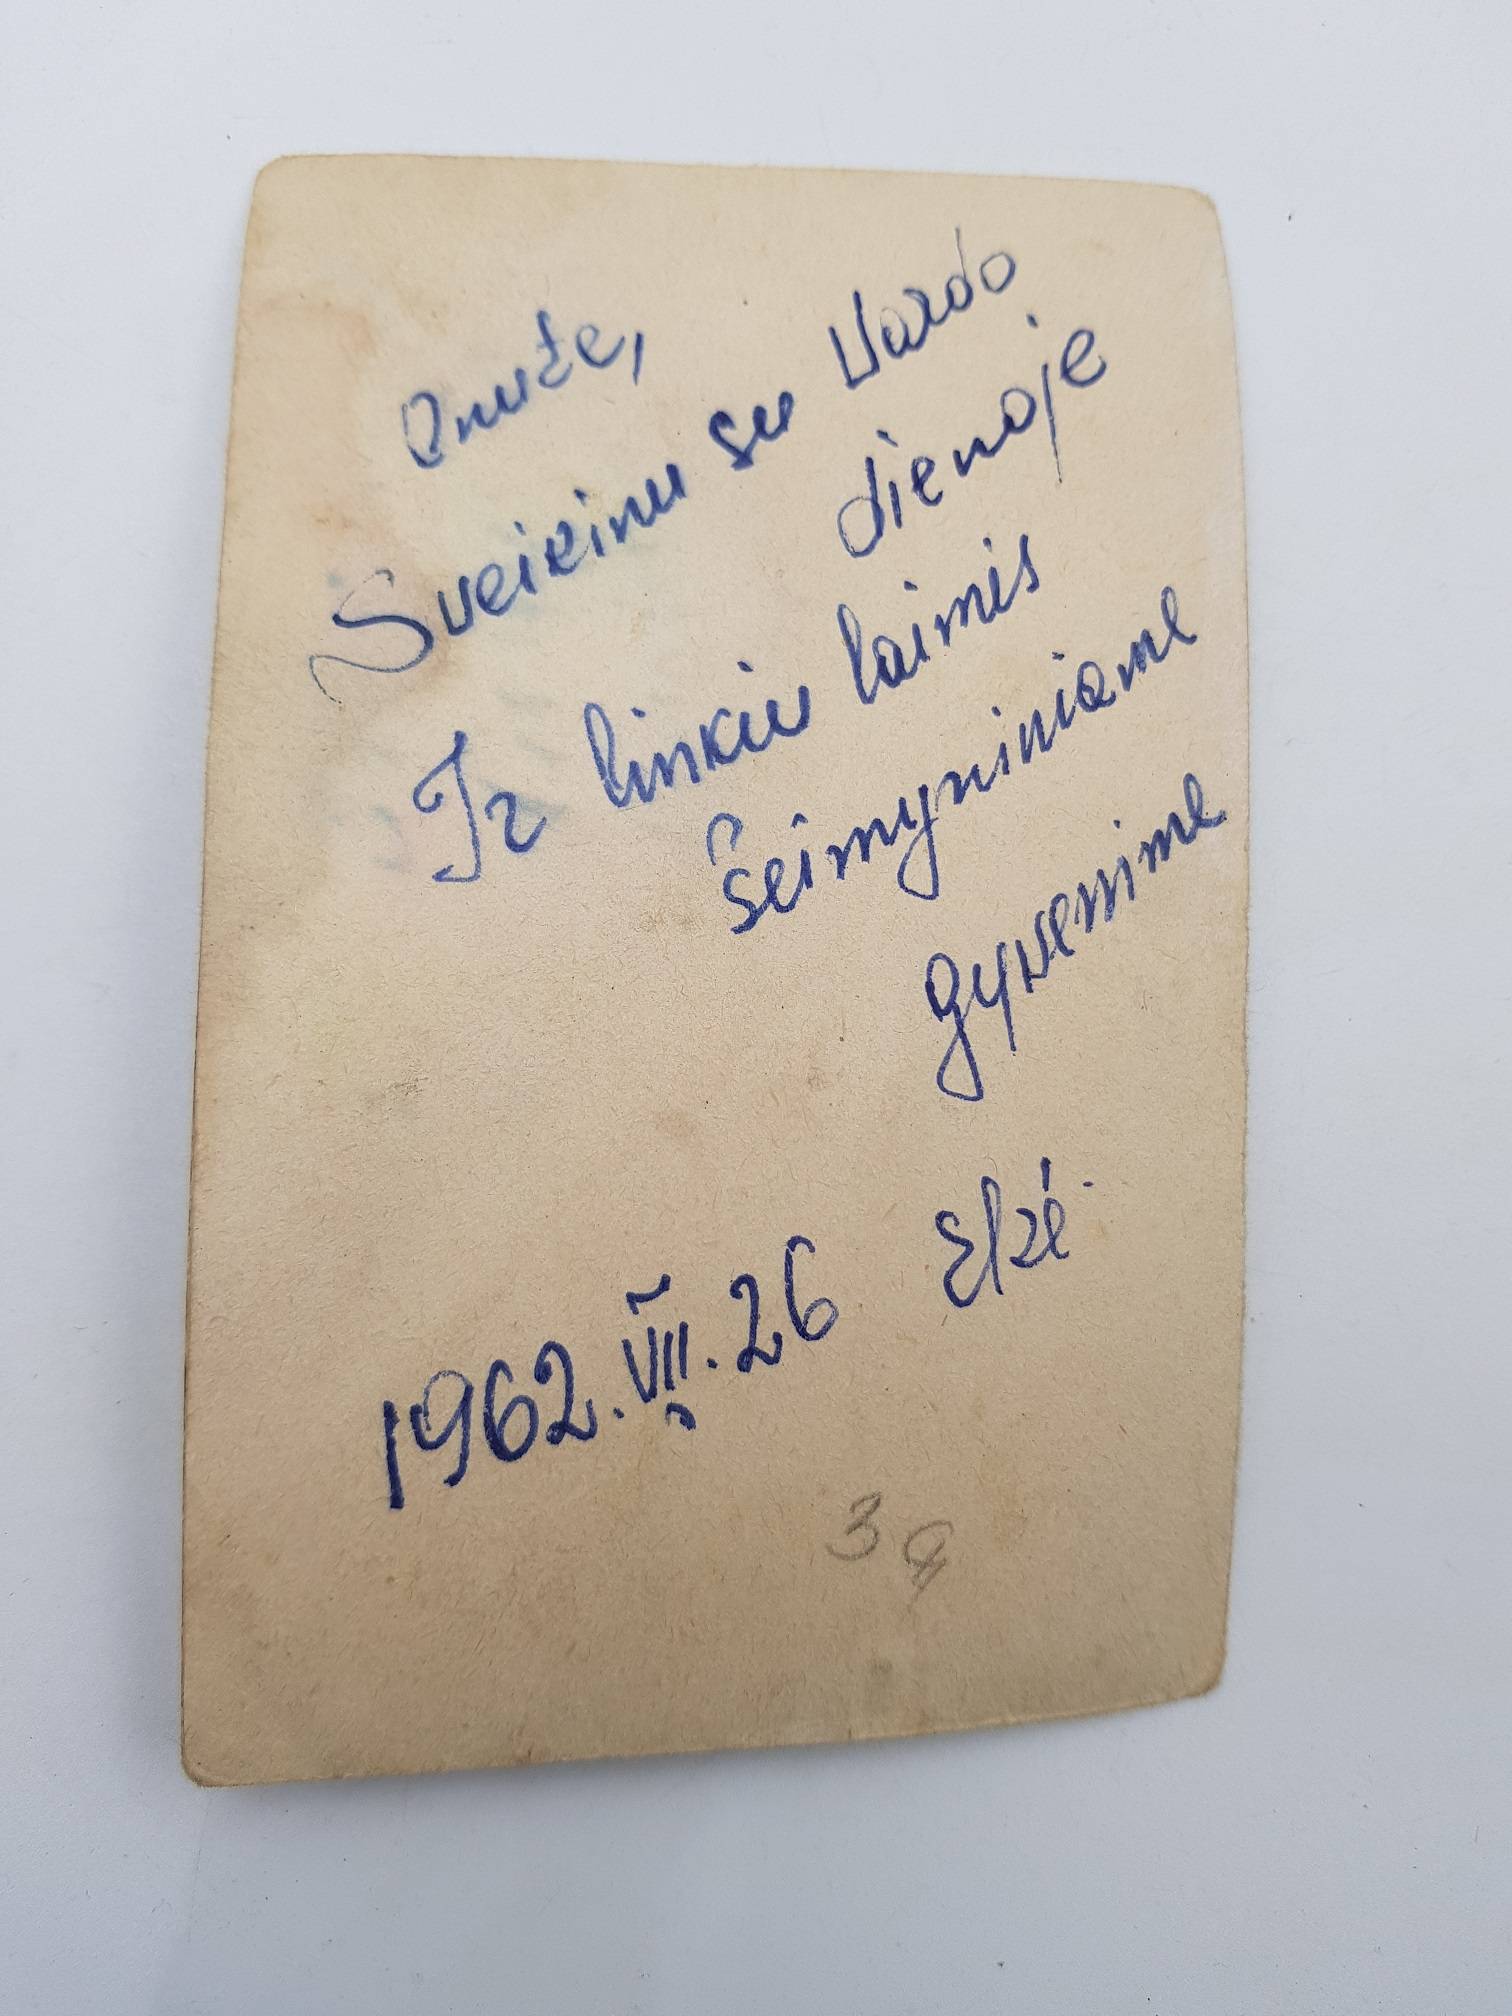 Onute,
Sveikinu su Vardo
dienoje
Ir linkiu laimės
šeimyniniame
gyvenime
Elzė.
1962.VII.26
3